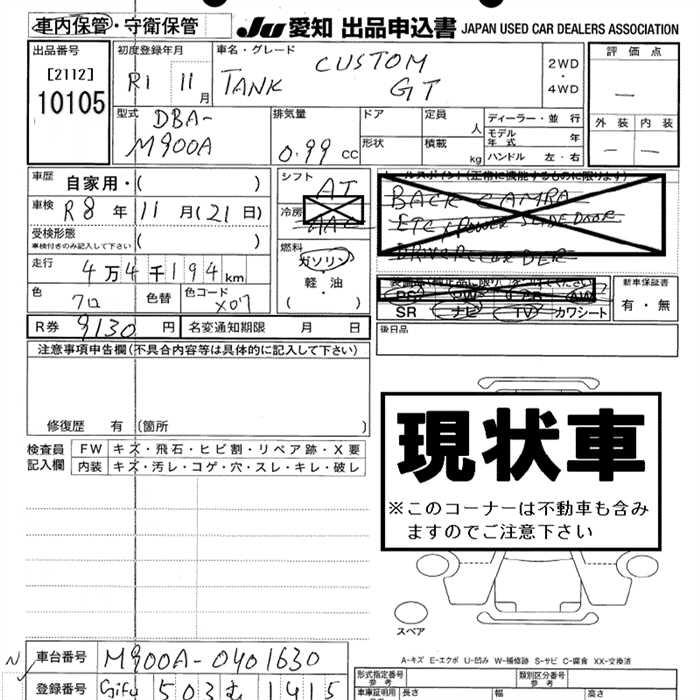 車内保管・守衛保管
JU 愛知 出品申込書 JAPAN USED CAR DEALERS ASSOCIATION
出品番号
[2112]
10105
初度登録年月
R1 11月
車名・グレード
TANK CUSTOM GT
2WD・4WD
評価点
—
外装 内装
— —
型式
DBA-
M900A
排気量
0.99 cc
ドア
形状
定員 人
積載 kg
ディーラー・並行
モデル年式 年
ハンドル 左・右
車歴 自家用・( )
車検 R8年11月(21日)
受検形態
車検付きのみ記入して下さい ( )
走行 4万4千194km
色 クロ 色替 色コード X07
シフト AT
冷房
燃料
ガソリン・軽油
( )
BACK CAMRA
SR ナビ TV カワシート
新車保証書
有・無
R券 9130円 名変通知期限 月 日
後日品
注意事項申告欄(不具合内容等は具体的に記入して下さい)
修復歴 有 (箇所 )
検査員記入欄
FW キズ・飛石・ヒビ割・リペア跡・X要
内装 キズ・汚レ・コゲ・穴・スレ・キレ・破レ
現状車
※このコーナーは不動車も含み
ますのでご注意下さい
スペア
A-キズ E-エクボ U-凹み W-補修跡 S-サビ C-腐食 XX-交換済
N 車台番号 M900A-0401630
登録番号 Gifu 503 む 1415
形式指定番号 参考
類別区分番号 参考
車庫証明用 長さ 幅 高さ